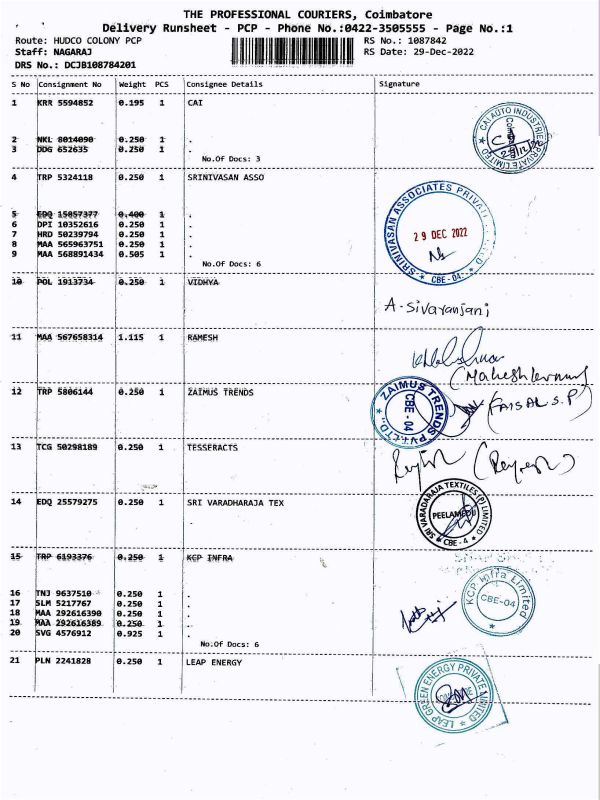 THE PROFESSIONAL COURIERS, Coimbatore
Delivery Runsheet - PCP - Phone No.:0422-3505555 - Page No.:1
Route: HUDCO COLONY PCP
RS No.: 1087842
Staff: NAGARAJ
RS Date: 29-Dec-2022
DRS No.: DCJB108784201
S No Consignment No Weight PCS Consignee Details Signature
1 KRR 5594852 0.195 1 CAI
CAI AUTO INDUSTRIES PRIVATE LIMITED
2 NKL 8014090 0.250 1 .
3 DDG 652635 0.250 1 .
No.Of Docs: 3
4 TRP 5324118 0.250 1 SRINIVASAN ASSO
SRINIVASAN ASSOCIATES PRIVATE LIMITED
29 DEC 2022
CBE-04
5 EDQ 15057377 0.400 1 .
6 DPI 10352616 0.250 1 .
7 HRD 50239794 0.250 1 .
8 MAA 565963751 0.250 1 .
9 MAA 568891434 0.505 1 .
No.Of Docs: 6
10 POL 1913734 0.250 1 VIDHYA
A-Sivaranjani
11 MAA 567658314 1.115 1 RAMESH
12 TRP 5806144 0.250 1 ZAIMUS TRENDS
ZAIMUS TRENDS PVT.LTD.,
CBE - 04
(FAISAL S.P)
13 TCG 50298189 0.250 1 TESSERACTS
14 EDQ 25579275 0.250 1 SRI VARADHARAJA TEX
SRI VARADARAJA TEXTILES (P) LIMITED
PEELAMEDU
CBE - 4
15 TRP 6193376 0.250 1 KCP INFRA
KCP Infra Limited
CBE-04
16 TNJ 9637510 0.250 1 .
17 SLM 5217767 0.250 1 .
18 MAA 292616390 0.250 1 .
19 MAA 292616389 0.250 1 .
20 SVG 4576912 0.925 1 .
No.Of Docs: 6
21 PLN 2241828 0.250 1 LEAP ENERGY
LEAP GREEN ENERGY PRIVATE LIMITED